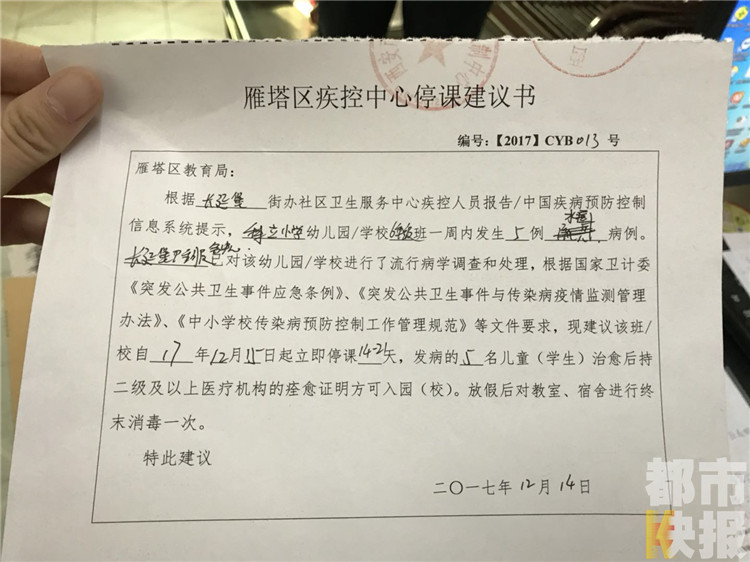 雁塔区疾控中心停课建议书
编号:【2017】CYB013号
雁塔区教育局:
根据 长延堡 街办社区卫生服务中心疾控人员报告/中国疾病预防控制
信息系统提示, 小学幼儿园/学校 班一周内发生 5 例 水痘 病例。
长延堡 对该幼儿园/学校进行了流行病学调查和处理,根据国家卫计委
《突发公共卫生事件应急条例》、《突发公共卫生事件与传染病疫情监测管理
办法》、《中小学校传染病预防控制工作管理规范》等文件要求,现建议该班/
校自 17 年12月15日起立即停课14-21天,发病的 5 名儿童(学生)治愈后持
二级及以上医疗机构的痊愈证明方可入园(校)。放假后对教室、宿舍进行终
末消毒一次。
特此建议
二〇一七年 12 月 14 日
都市
快报